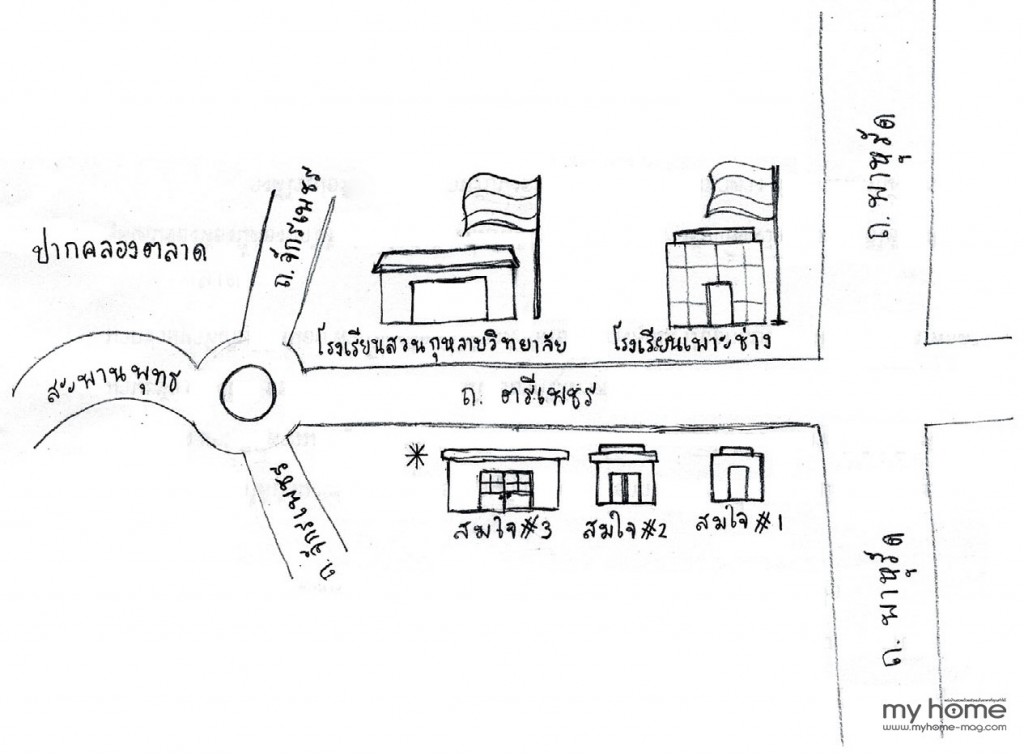 ถ. พาหุรัด
ถ. จักรเพชร
ปากคลองตลาด
โรงเรียนสวนกุหลาบวิทยาลัย
โรงเรียนเพาะช่าง
สะพานพุทธ
ถ. ตรีเพชร
ถ. จักรเพชร
สมใจ #3
สมใจ #2
สมใจ #1
ถ. พาหุรัด
my home
www.myhome-mag.com